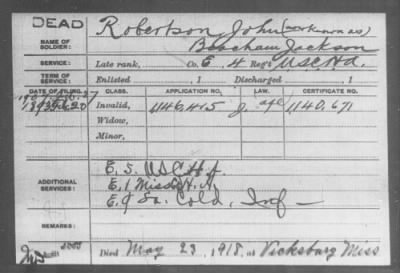 DEAD
Robertson, John (or known as)
NAME OF SOLDIER:
Beacham Jackson
SERVICE: Late rank, Co. E, 4 Reg't U.S.C.H.A.
TERM OF SERVICE: Enlisted , 1 Discharged , 1
DATE OF FILING. CLASS. APPLICATION NO. LAW. CERTIFICATE NO.
1907 Feb. 27
Invalid, 1146.415 J. age 1140.671
Widow,
Minor,
ADDITIONAL SERVICES:
E, 5, U.S.C.H.A.
E, 1 Miss. H.A.
E, 9 La. Cold. Inf —
REMARKS:
Died May 23, 1918, at Vicksburg Miss